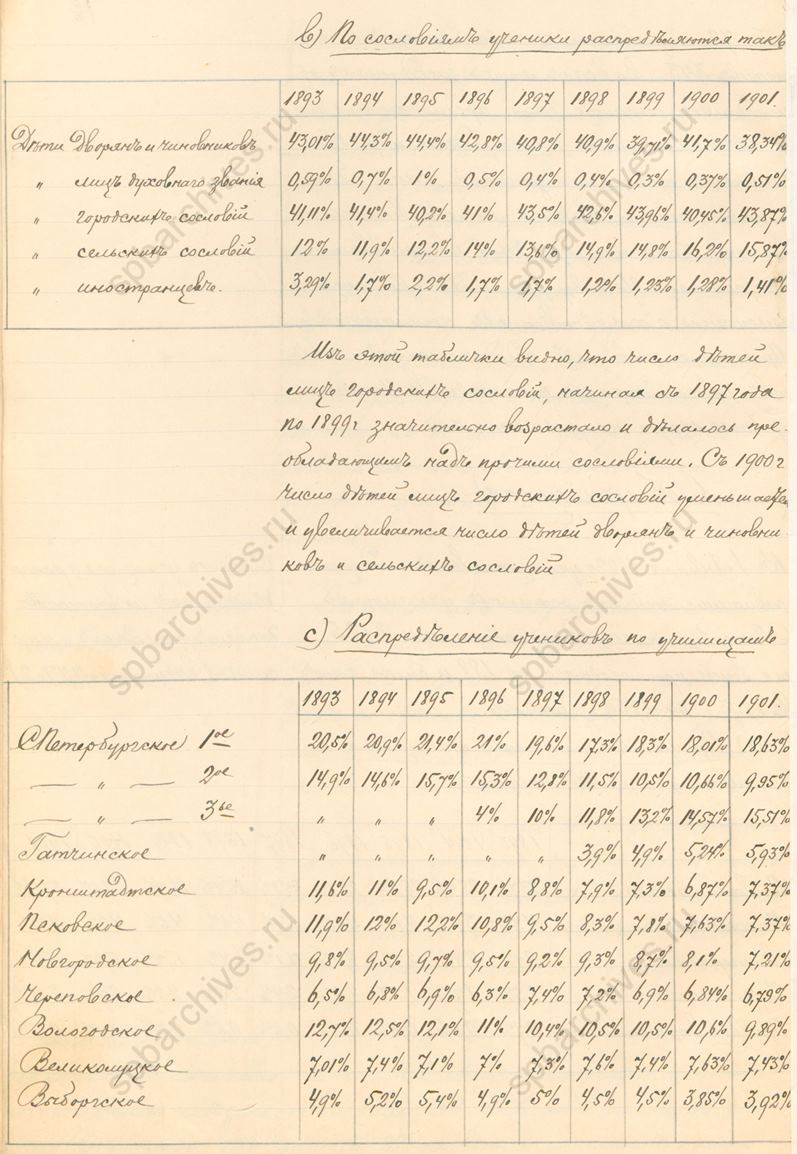 в) По сословіямъ ученики распредѣляются такъ
1893 1894 1895 1896 1897 1898 1899 1900 1901.
Дѣти дворянъ и чиновниковъ 43,01% 44,3% 44,4% 42,8% 40,8% 40,9% 39,71% 41,7% 38,34%
„ лицъ духовнаго званія 0,59% 0,7% 1% 0,5% 0,4% 0,4% 0,3% 0,37% 0,51%
„ городскихъ сословій 41,11% 41,4% 40,2% 41% 43,5% 42,6% 43,96% 40,45% 43,87%
„ сельскихъ сословій 12% 11,9% 12,2% 14% 13,6% 14,9% 14,8% 16,2% 15,87%
„ иностранцевъ. 3,29% 1,7% 2,2% 1,7% 1,7% 1,2% 1,23% 1,28% 1,41%
Изъ этой таблички видно, что число дѣтей
лицъ городскихъ сословій, начиная съ 1897 года
по 1899 г значительно возрастало и дѣлалось пре-
обладающимъ надъ прочими сословіями. Съ 1900 г
число дѣтей лицъ городскихъ сословій уменьшается
и увеличивается число дѣтей дворянъ и чиновни
ковъ и сельскихъ сословій
с) Распредѣленіе учениковъ по училищамъ
1893 1894 1895 1896 1897 1898 1899 1900 1901.
СПетербургское 1ое 20,5% 20,9% 21,4% 21% 19,6% 17,3% 18,3% 18,01% 18,63%
— „ — 2ое 14,9% 14,6% 15,7% 15,3% 12,8% 11,5% 10,5% 10,66% 9,95%
— „ — 3ье „ „ „ 4% 10% 11,8% 13,2% 14,57% 15,51%
Гатчинское „ „ „ „ „ 3,9% 4,9% 5,24% 5,93%
Кронштадтское 11,6% 11% 9,5% 10,1% 8,8% 7,9% 7,3% 6,87% 7,37%
Псковское 11,9% 12% 12,2% 10,8% 9,5% 8,3% 7,8% 7,63% 7,37%
Новгородское 9,8% 9,5% 9,7% 9,5% 9,2% 9,3% 8,7% 8,1% 7,21%
Череповское 6,5% 6,8% 6,9% 6,3% 7,4% 7,2% 6,9% 6,84% 6,79%
Вологодское 12,7% 12,5% 12,1% 11% 10,4% 10,5% 10,5% 10,6% 9,89%
Великолуцкое 7,01% 7,4% 7,1% 7% 7,3% 7,6% 7,4% 7,63% 7,43%
Выборгское 4,9% 5,2% 5,4% 4,9% 5% 4,5% 4,5% 3,85% 3,92%
spbarchives.ru
spbarchives.ru
spbarchives.ru
spbarchives.ru
spbarchives.ru
spbarchives.ru